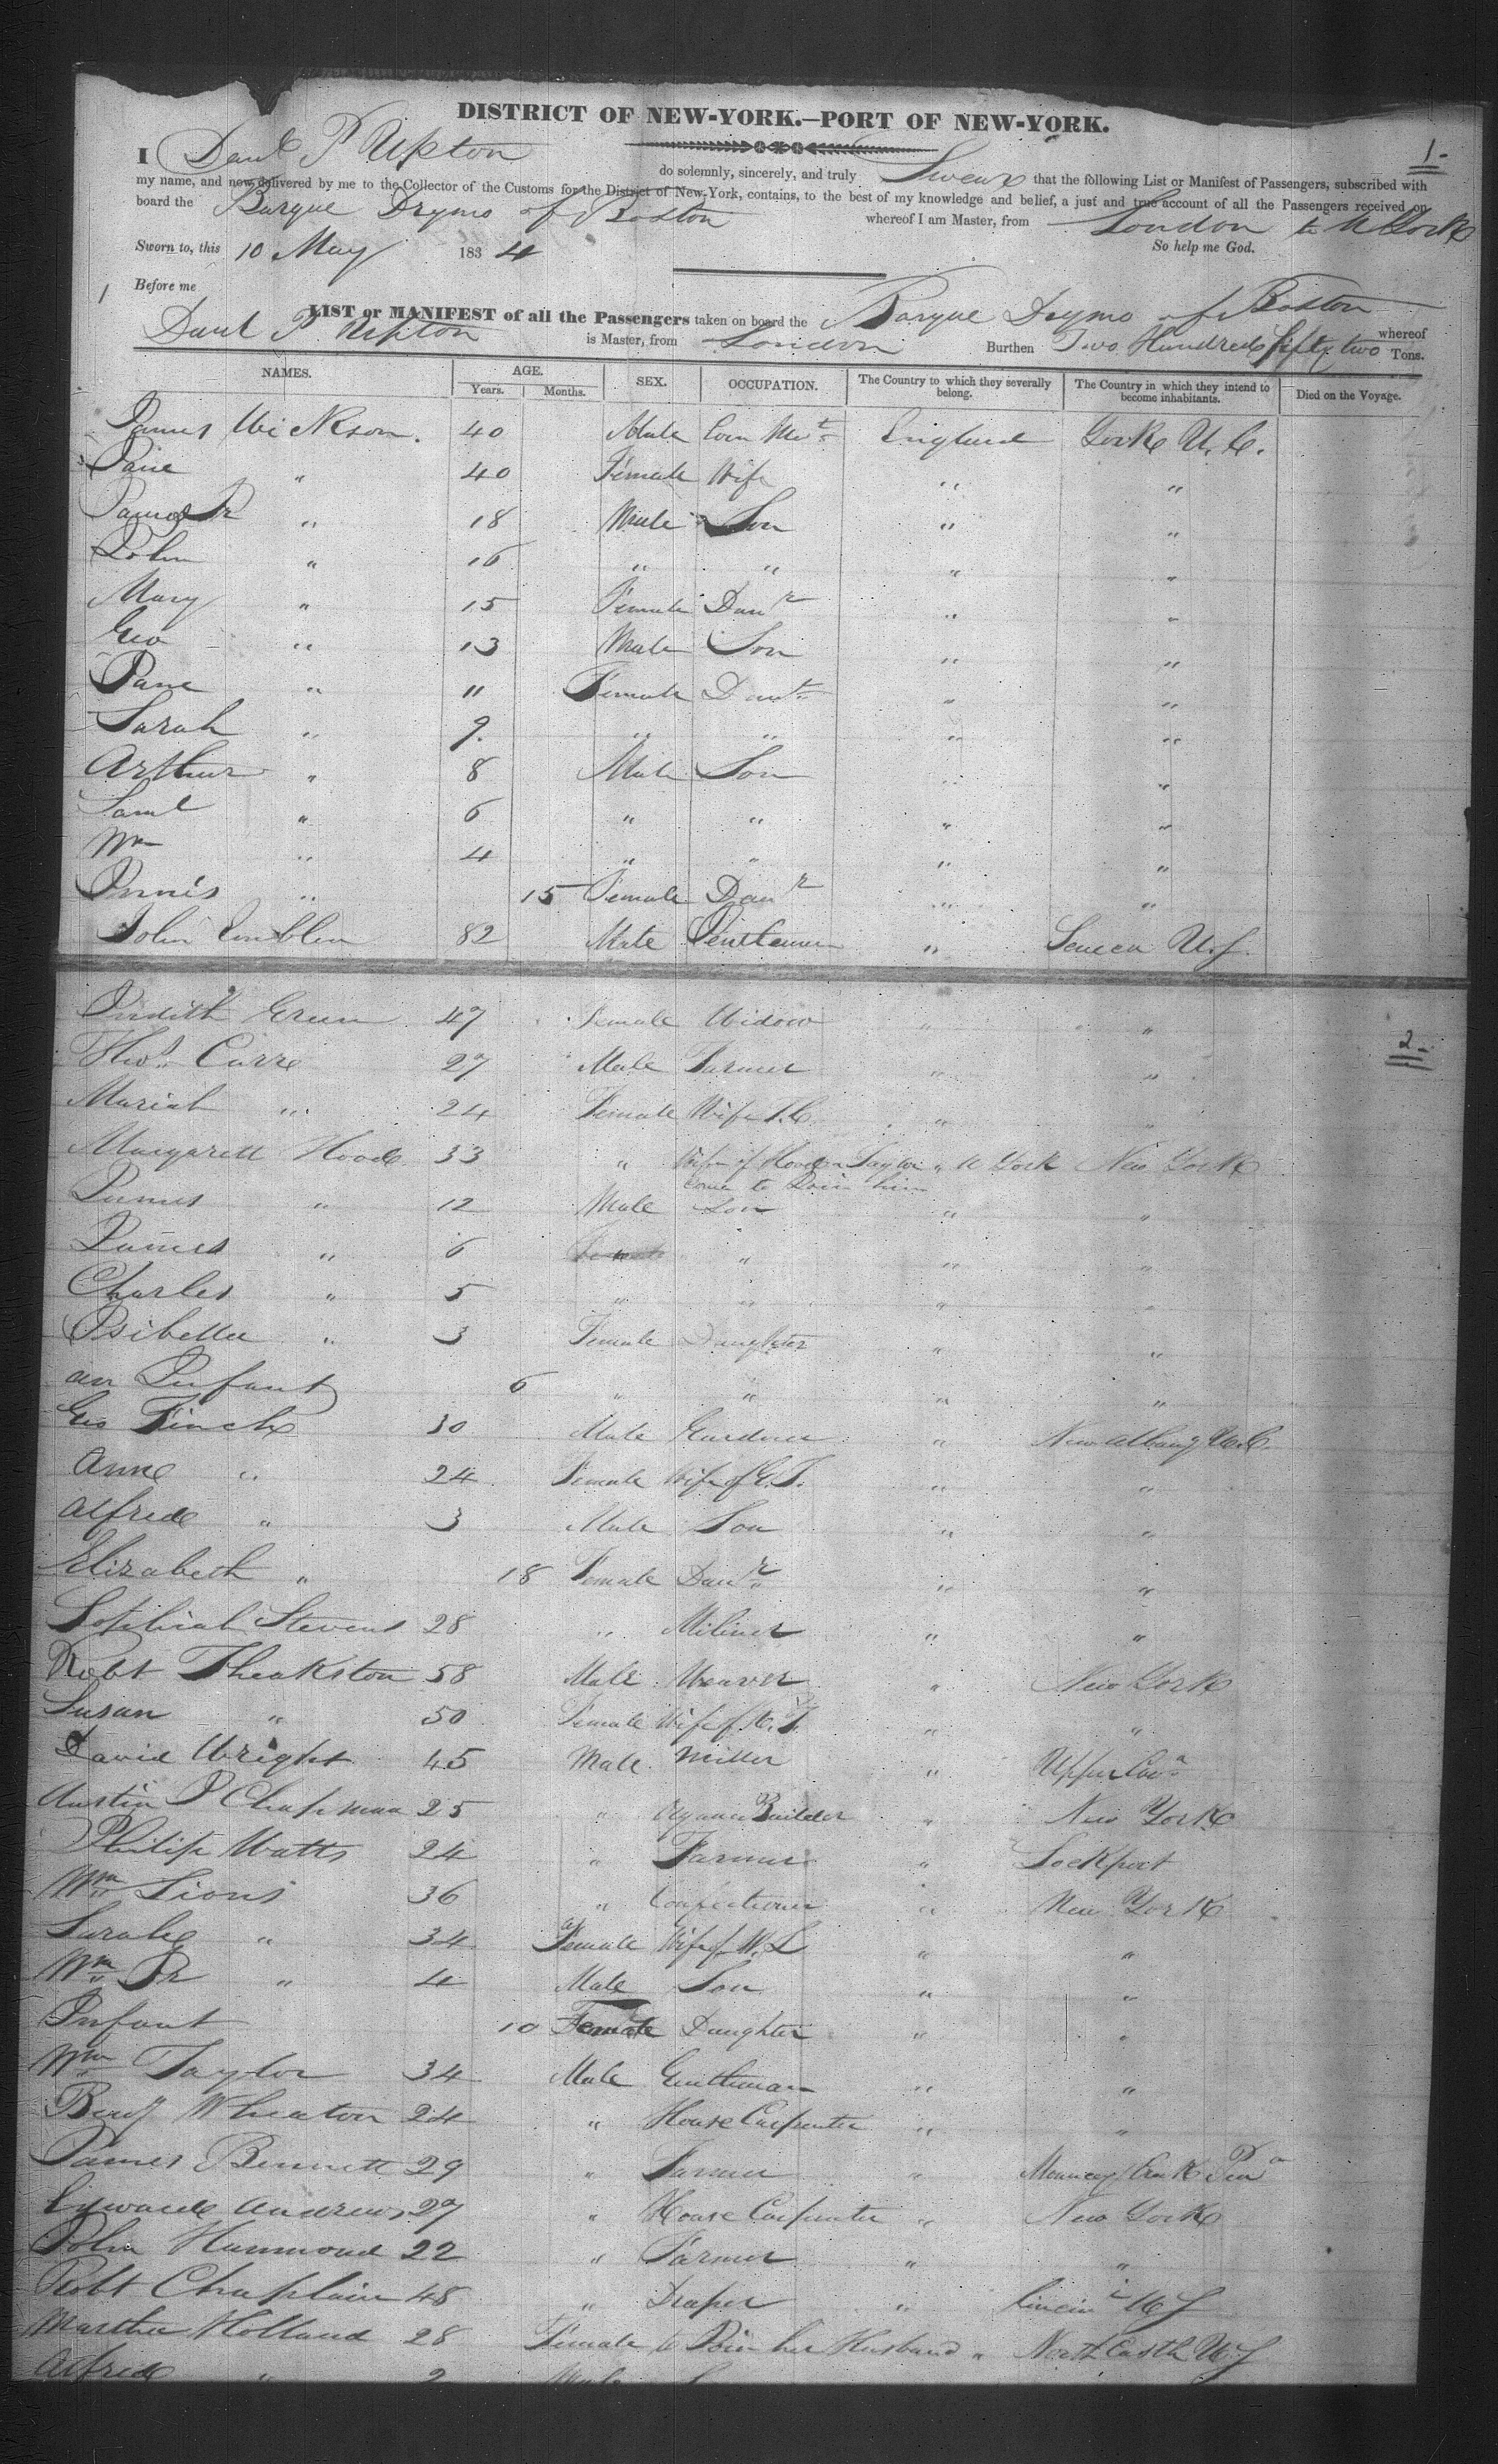 DISTRICT OF NEW-YORK.—PORT OF NEW-YORK.
1-
I Danl P Upton do solemnly, sincerely, and truly Swear that the following List or Manifest of Passengers, subscribed with
my name, and now delivered by me to the Collector of the Customs for the District of New-York, contains, to the best of my knowledge and belief, a just and true account of all the Passengers received on
board the Barque Drymo of Boston whereof I am Master, from London to N York
Sworn to, this 10 May 1834 So help me God.
Before me
LIST or MANIFEST of all the Passengers taken on board the Barque Drymo of Boston whereof
Danl P Upton is Master, from London Burthen Two Hundred fifty two Tons.
NAMES. AGE. Years. Months. SEX. OCCUPATION. The Country to which they severally belong. The Country in which they intend to become inhabitants. Died on the Voyage.
James Wickson. 40 Male Corn Mert England York U.C.
Jane " 40 Female Wife " "
James Jr " 18 Male Son " "
John " 16 " " " "
Mary " 15 Female Daur " "
Geo " 13 Male Son " "
Jane " 11 Female Dautr " "
Sarah " 9. " " " "
Arthur " 8 Male Son " "
Saml " 6 " " " "
Wm " 4 " " " "
" 15 Female Daur " "
John Emblen 82 Male Gentleman " Seneca U.S.
Judith Green 47 Female Widow " "
2-
Thos Carre 27 Male Farmer " "
Mariah " 24 Female Wife T.C. " "
Margarett Hood 33 " Wife of Hood a Taylor " N York New York
come to Join him
James " 12 Male Son " "
James " 6 " " "
Charles " 5 " " " "
Isibella " 3 Female Daughter " "
an Infant 6 " " " "
Geo Finch 30 Male Gardner " New Albany
Anne " 24 Female Wife of G.F. " "
Alfred " 3 Male Son " "
Elizabeth " 18 Female Daur " "
Sophiah Stevens 28 " Miliner " "
Robt Theakston 58 Male Weaver " New York
Susan " 50 Female Wife of R.T. " "
David Wright 45 Male Miller " Upper Can
Austin P Chapman 25 " Organ Builder " New York
Philip Watts 24 " Farmer " Lockport
Wm Lions 36 " Confectioner " New York
Sarah " 34 Female Wife of W.L " "
Wm Jr " 4 Male Son " "
Infant 10 Female Daughter " "
Wm Taylor 34 Male Gentleman " "
Benj Wheaton 24 " House Carpenter " "
James Bennett 29 " Farmer " Creek
Edward Andrews 27 " House Carpenter " New York
John Hammond 22 " Farmer " "
Robt Chaplain 48 " Draper " Cincini U S
Martha Holland 28 Female to Join her Husband " North Castle U S
Alfred " 2 Male